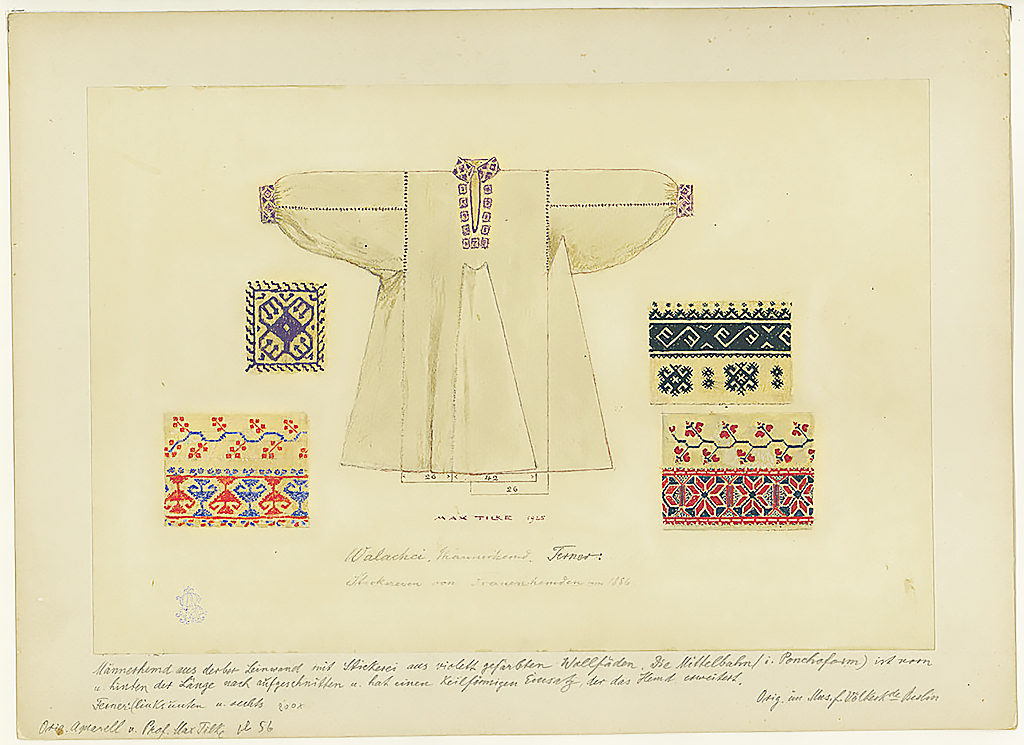 26 42
26
MAX TILKE 1925
Walachei, Männerhemd. Ferner:
Stickereien von Frauenhemden um 1886
Männerhemd aus derber Leinwand mit Stickerei aus violett gefärbten Wollfäden. Die Mittelbahn (i. Ponchoform) ist vorn
u. hinten der Länge nach aufgeschnitten u. hat einen keilförmigen Einsatz, der das Hemd erweitert.
Ferner: links unten u. rechts
Orig. im Mus. f. Völkerkde Berlin
Orig. Aquarell v. Prof. Max Tilke 56